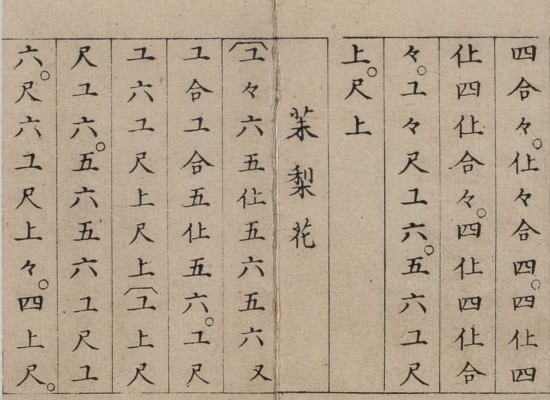 四合々。仩々合四。四仩四
仩四仩合々。四仩四仩合
々。工々尺工六。五六工尺
上。尺上
茉梨花
工々六五仩五六五六又
工合工合五仩五六。工尺
工六工尺上尺上工上尺
尺工六。五六五六工尺工
六。尺六工尺上々。四上尺。